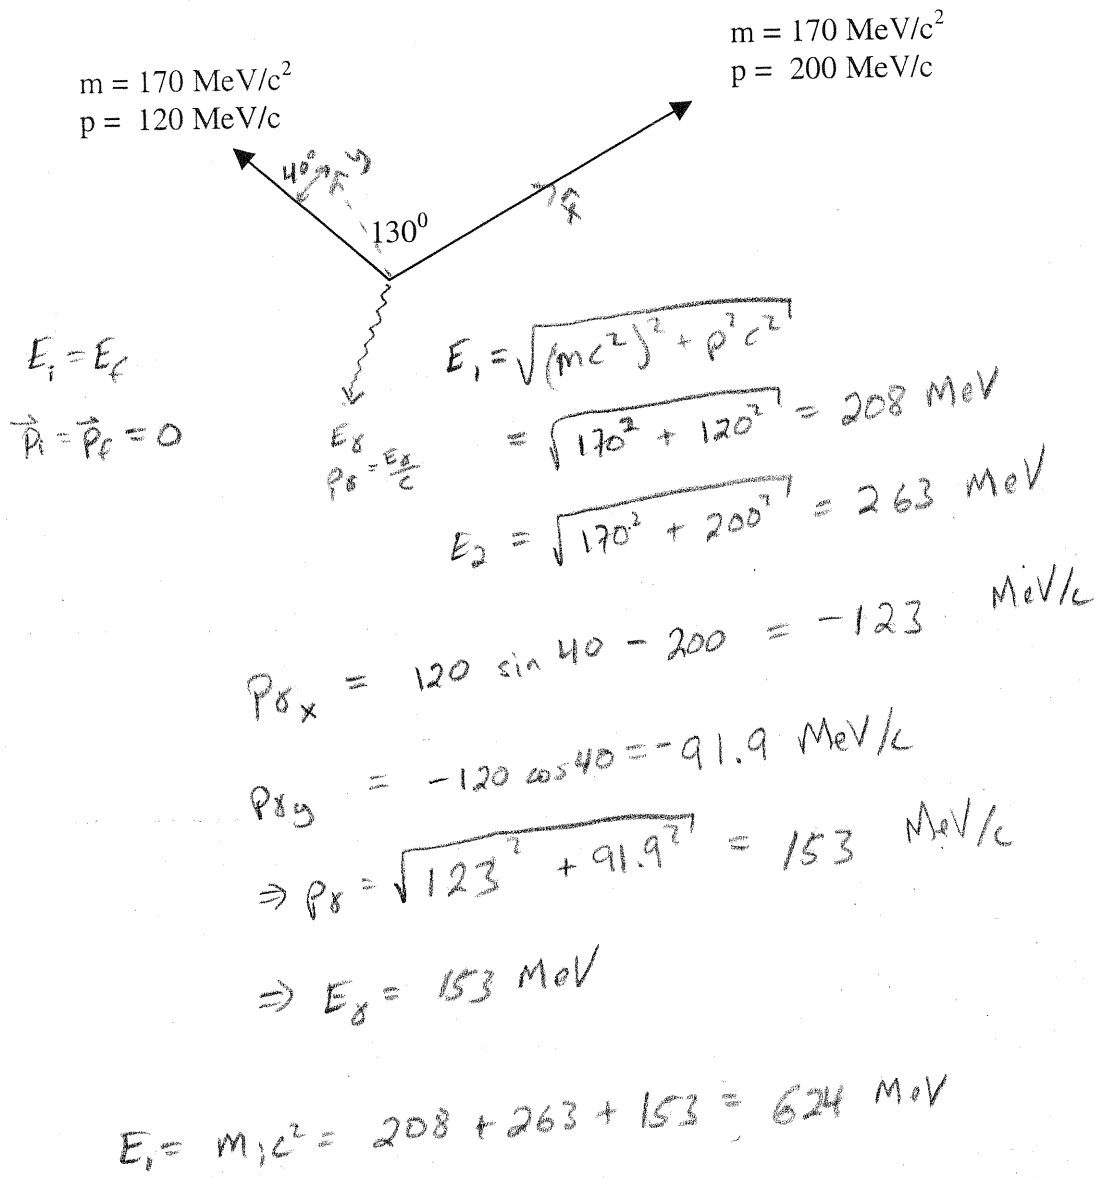 m = 170 MeV/c²
p = 200 MeV/c
m = 170 MeV/c²
p = 120 MeV/c
40°
ŷ
x̂
130⁰
E_i = E_f
p⃗_i = p⃗_f = 0
E_γ
p_γ = E_γ/c
E_1 = √((mc²)² + p²c²)
= √(170² + 120²) = 208 MeV
E_2 = √(170² + 200²) = 263 MeV
p_γx = 120 sin 40 - 200 = -123 MeV/c
p_γy = -120 cos 40 = -91.9 MeV/c
⇒ p_γ = √(123² + 91.9²) = 153 MeV/c
⇒ E_γ = 153 MeV
E_i = m_i c² = 208 + 263 + 153 = 624 MeV